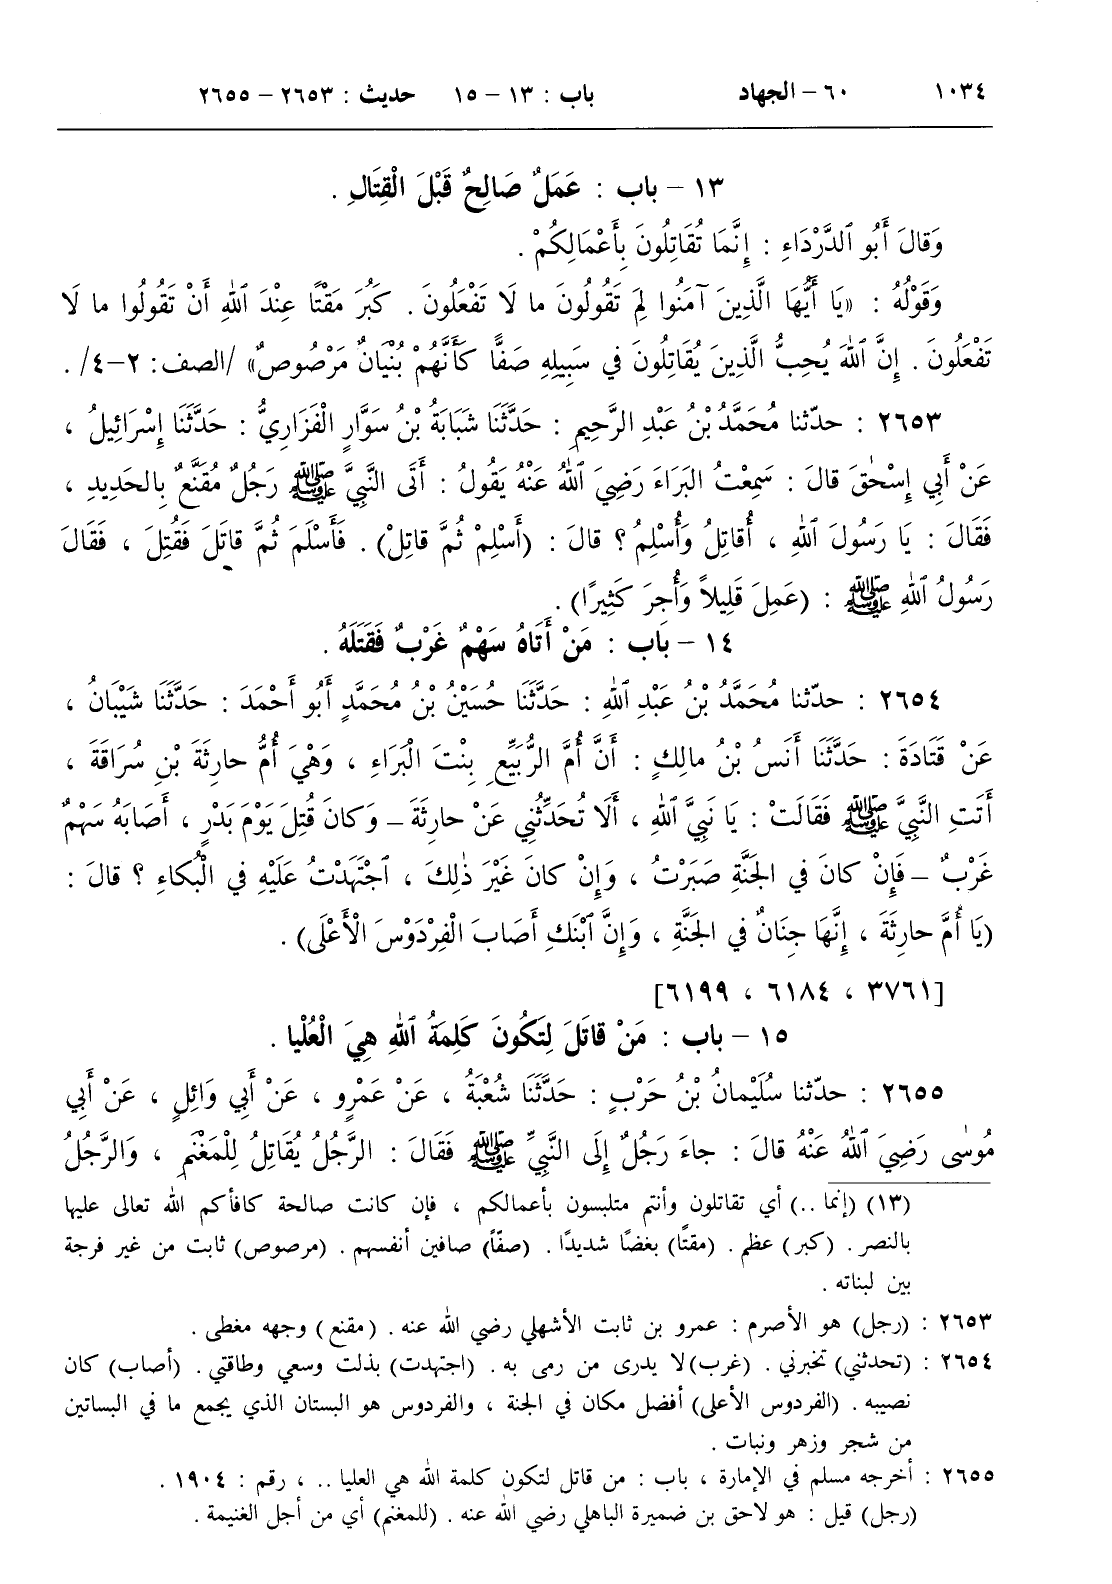 ١٠٣٤ ٦٠ – الجهاد باب : ١٣ – ١٥ حديث : ٢٦٥٣ – ٢٦٥٥
١٣ – باب : عَمَلٌ صَالِحٌ قَبْلَ الْقِتَالِ .
وَقالَ أَبُو ٱلدَّرْدَاءِ : إِنَّمَا تُقَاتِلُونَ بِأَعْمَالِكُمْ .
وَقَوْلُهُ : «يَا أَيُّهَا الَّذِينَ آمَنُوا لِمَ تَقُولُونَ ما لَا تَفْعَلُونَ . كَبُرَ مَقْتًا عِنْدَ ٱللهِ أَنْ تَقُولُوا ما لَا
تَفْعَلُونَ . إِنَّ ٱللهَ يُحِبُّ الَّذِينَ يُقَاتِلُونَ في سَبِيلِهِ صَفًّا كَأَنَّهُمْ بُنْيَانٌ مَرْصُوصٌ» /الصف: ٢–٤/ .
٢٦٥٣ : حدّثنا مُحَمَّدُ بْنُ عَبْدِ الرَّحِيمِ : حَدَّثَنَا شَبَابَةُ بْنُ سَوَّارٍ الْفَزَارِيُّ : حَدَّثَنَا إِسْرَائِيلُ ،
عَنْ أَبِي إِسْحٰقَ قالَ : سَمِعْتُ الْبَرَاءَ رَضِيَ ٱللهُ عَنْهُ يَقُولُ : أَتَى النَّبِيَّ ﷺ رَجُلٌ مُقَنَّعٌ بِالحَدِيدِ ،
فَقَالَ : يَا رَسُولَ ٱللهِ ، أُقاتِلُ وَأُسْلِمُ ؟ قالَ : (أَسْلِمْ ثُمَّ قاتِلْ) . فَأَسْلَمَ ثُمَّ قاتَلَ فَقُتِلَ ، فَقَالَ
رَسُولُ ٱللهِ ﷺ : (عَمِلَ قَلِيلاً وَأُجِرَ كَثِيرًا) .
١٤ – بَاب : مَنْ أَتَاهُ سَهْمٌ غَرْبٌ فَقَتَلَهُ .
٢٦٥٤ : حدّثنا مُحَمَّدُ بْنُ عَبْدِ ٱللهِ : حَدَّثَنَا حُسَيْنُ بْنُ مُحَمَّدٍ أَبُو أَحْمَدَ : حَدَّثَنَا شَيْبَانُ ،
عَنْ قَتَادَةَ : حَدَّثَنَا أَنَسُ بْنُ مالِكٍ : أَنَّ أُمَّ الرُّبَيِّعِ بِنْتَ الْبَرَاءِ ، وَهْيَ أُمُّ حارِثَةَ بْنِ سُرَاقَةَ ،
أَتَتِ النَّبِيَّ ﷺ فَقَالَتْ : يَا نَبِيَّ ٱللهِ ، أَلَا تُحَدِّثُنِي عَنْ حارِثَةَ – وَكانَ قُتِلَ يَوْمَ بَدْرٍ ، أَصَابَهُ سَهْمٌ
غَرْبٌ – فَإِنْ كانَ في الجَنَّةِ صَبَرْتُ ، وَإِنْ كانَ غَيْرَ ذٰلِكَ ، ٱجْتَهَدْتُ عَلَيْهِ في الْبُكاءِ ؟ قالَ :
(يَا أُمَّ حارِثَةَ ، إِنَّهَا جِنَانٌ في الجَنَّةِ ، وَإِنَّ ٱبْنَكِ أَصَابَ الْفِرْدَوْسَ الْأَعْلَى) .
[٣٧٦١ ، ٦١٨٤ ، ٦١٩٩]
١٥ – باب : مَنْ قاتَلَ لِتَكُونَ كَلِمَةُ ٱللهِ هِيَ الْعُلْيا .
٢٦٥٥ : حدّثنا سُلَيْمانُ بْنُ حَرْبٍ : حَدَّثَنَا شُعْبَةُ ، عَنْ عَمْرٍو ، عَنْ أَبِي وَائِلٍ ، عَنْ أَبِي
مُوسٰى رَضِيَ ٱللهُ عَنْهُ قالَ : جاءَ رَجُلٌ إِلَى النَّبِيِّ ﷺ فَقَالَ : الرَّجُلُ يُقَاتِلُ لِلْمَغْنَمِ ، وَالرَّجُلُ
(١٣) (إنما ..) أي تقاتلون وأنتم متلبسون بأعمالكم ، فإن كانت صالحة كافأكم الله تعالى عليها
بالنصر . (كبر) عظم . (مقتًا) بغضًا شديدًا . (صفّاً) صافين أنفسهم . (مرصوص) ثابت من غير فرجة
بين لبناته .
٢٦٥٣ : (رجل) هو الأصرم : عمرو بن ثابت الأشهلي رضي الله عنه . (مقنع) وجهه مغطى .
٢٦٥٤ : (تحدثني) تخبرني . (غرب) لا يدرى من رمى به . (اجتهدت) بذلت وسعي وطاقتي . (أصاب) كان
نصيبه . (الفردوس الأعلى) أفضل مكان في الجنة ، والفردوس هو البستان الذي يجمع ما في البساتين
من شجر وزهر ونبات .
٢٦٥٥ : أخرجه مسلم في الإمارة ، باب : من قاتل لتكون كلمة الله هي العليا .. ، رقم : ١٩٠٤ .
(رجل) قيل : هو لاحق بن ضميرة الباهلي رضي الله عنه . (للمغنم) أي من أجل الغنيمة .